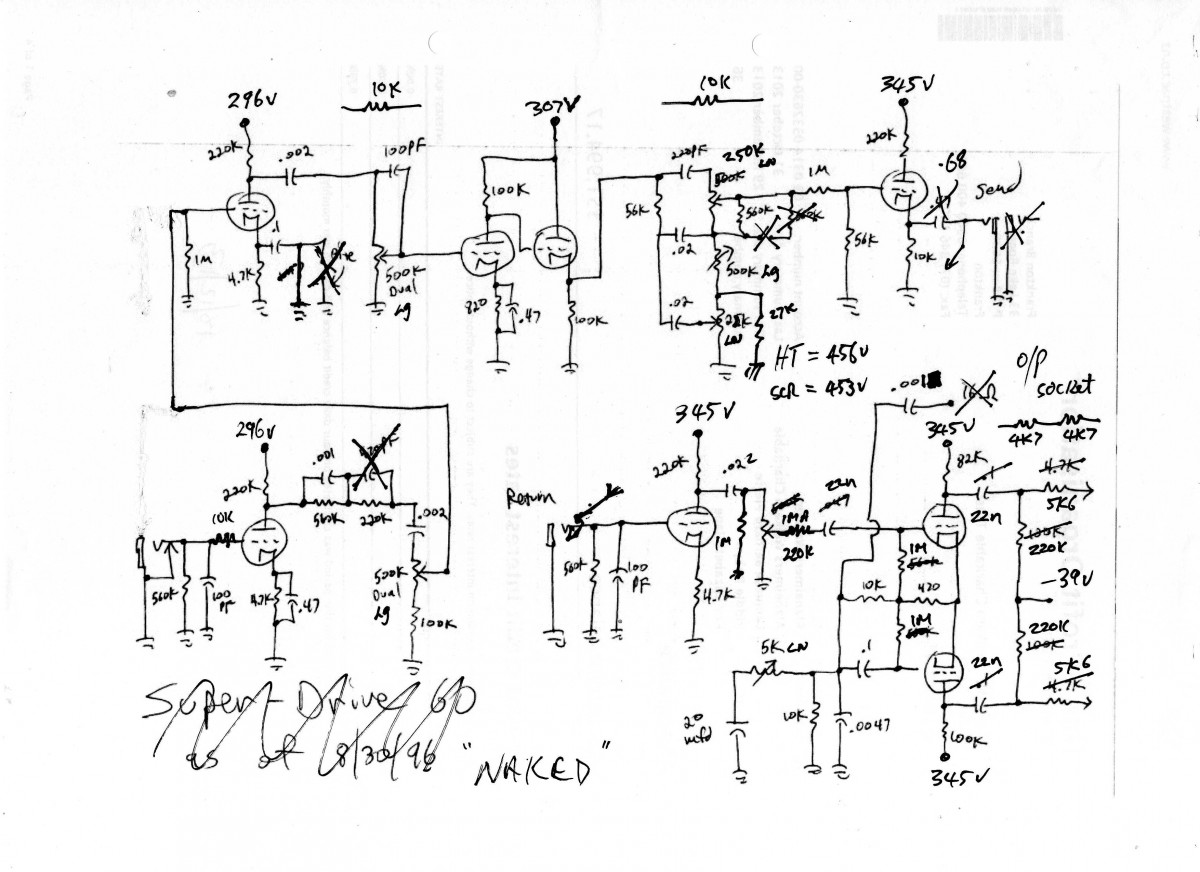 10K
10K
296V
307V
345V
220K
.002
100PF
220PF
250K
LN
500K
1M
220K
.68
.47
Send
100K
56K
560K
560K
56K
1M
.1
4.7K
500K
Dual
Lg
820
.47
100K
.02
500K Lg
10K
.02
25K
LN
27K
HT = 456V
SCR = 453V
O/P
SOCKET
.001
16Ω
345V
4K7
4K7
296V
345V
.001
220K
10K
560K
220K
.002
220K
.022
22n
.047
82K
.1
22n
4.7K
5K6
Return
1M
1MA
220K
100K
220K
560K
100
PF
4.7K
.47
500K
Dual
Lg
100K
560K
100
PF
4.7K
1M
560K
10K
470
-39V
1M
220K
100K
5K LN
.1
22n
.1
5K6
4.7K
20
mfd
10K
.0047
100K
345V
Super-Drive 60
as of 8/30/96
"NAKED"